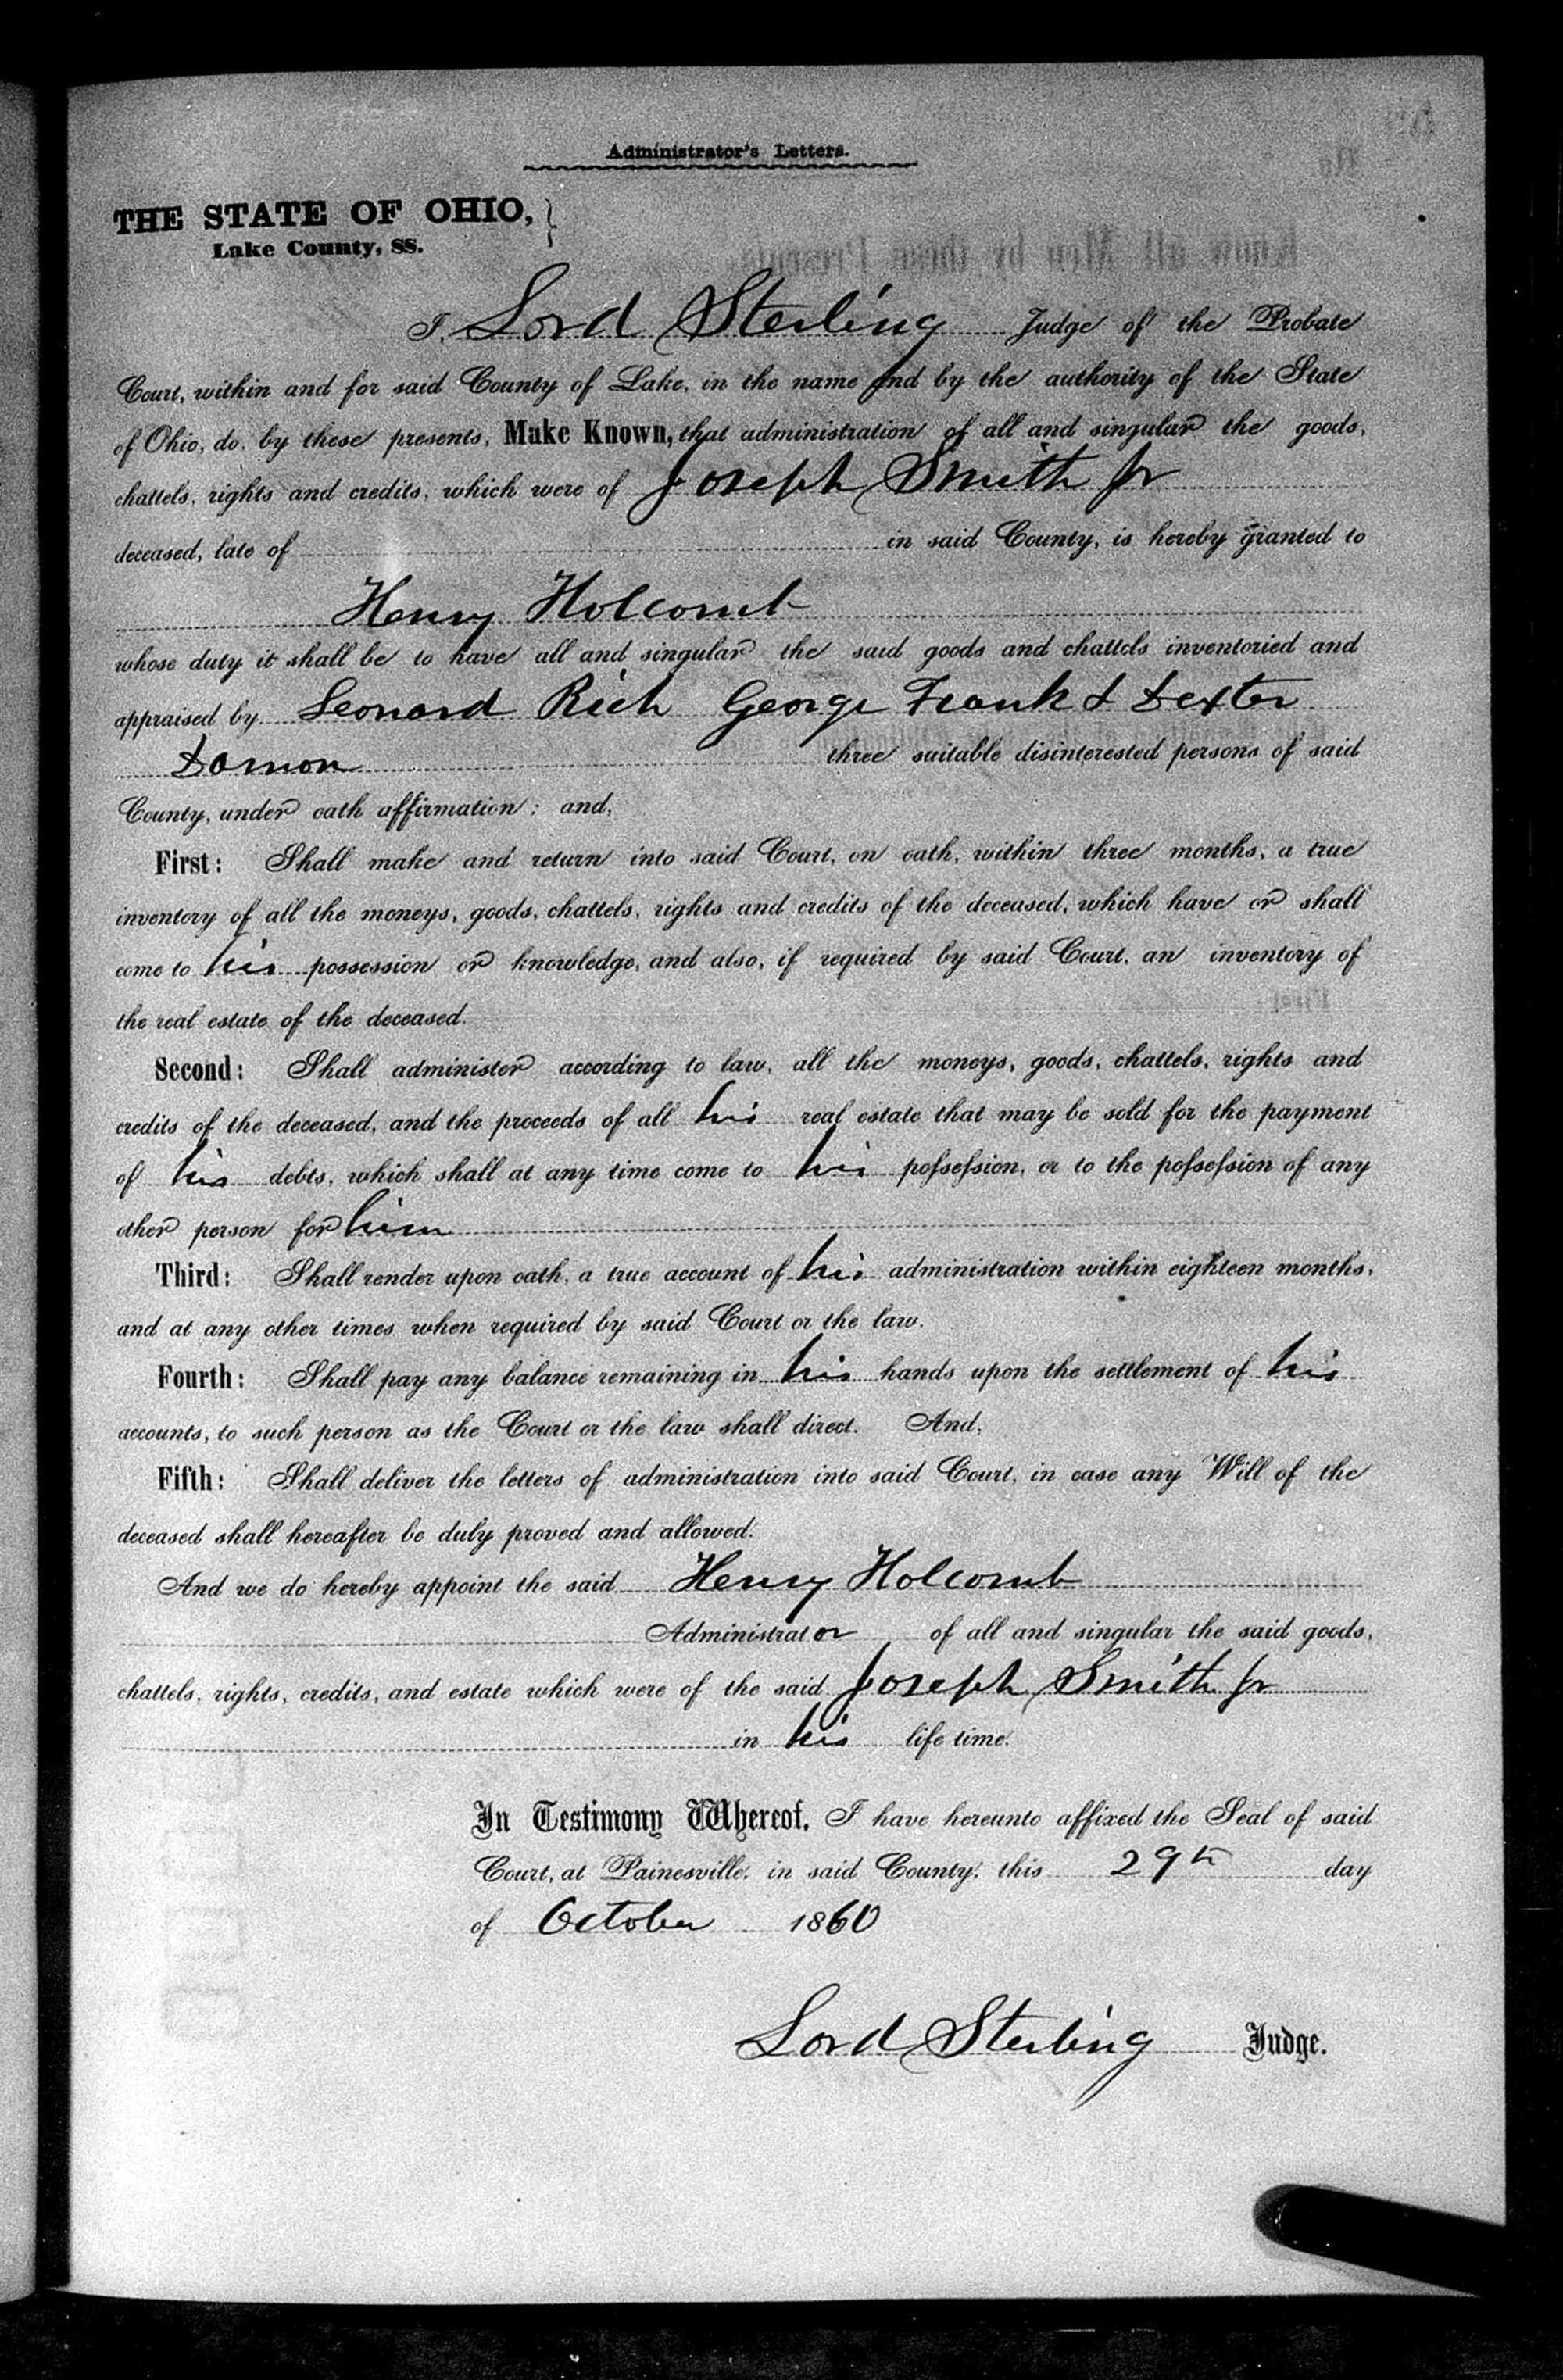 Administrator's Letters.
THE STATE OF OHIO, }
Lake County, SS.
I, Lord Sterling Judge of the Probate
Court, within and for said County of Lake, in the name and by the authority of the State
of Ohio, do, by these presents, Make Known, that administration of all and singular the goods,
chattels, rights and credits, which were of Joseph Smith Jr
deceased, late of in said County, is hereby granted to
Henry Holcomb
whose duty it shall be to have all and singular the said goods and chattels inventoried and
appraised by Leonard Rich George Frank & Dexter
Damon three suitable disinterested persons of said
County, under oath affirmation; and,
First: Shall make and return into said Court, on oath, within three months, a true
inventory of all the moneys, goods, chattels, rights and credits of the deceased, which have or shall
come to his possession or knowledge, and also, if required by said Court, an inventory of
the real estate of the deceased.
Second: Shall administer according to law, all the moneys, goods, chattels, rights and
credits of the deceased, and the proceeds of all his real estate that may be sold for the payment
of his debts, which shall at any time come to his poſseſsion, or to the poſseſsion of any
other person for him
Third: Shall render upon oath, a true account of his administration within eighteen months,
and at any other times when required by said Court or the law.
Fourth: Shall pay any balance remaining in his hands upon the settlement of his
accounts, to such person as the Court or the law shall direct. And,
Fifth: Shall deliver the letters of administration into said Court, in case any Will of the
deceased shall hereafter be duly proved and allowed.
And we do hereby appoint the said Henry Holcomb
Administrator of all and singular the said goods,
chattels, rights, credits, and estate which were of the said Joseph Smith Jr
in his life time.
In Testimony Whereof, I have hereunto affixed the Seal of said
Court, at Painesville, in said County, this 29th day
of October 1860
Lord Sterling Judge.